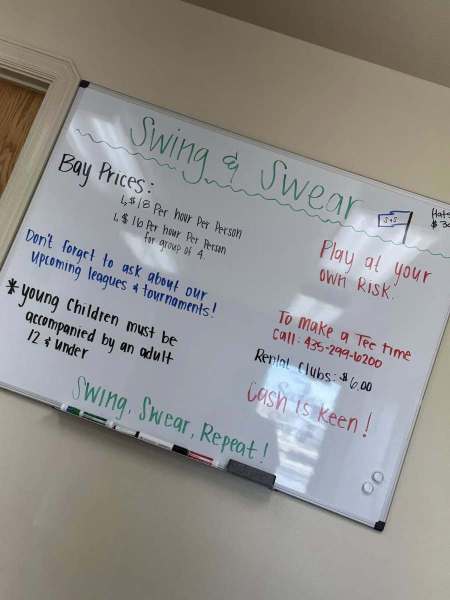 Swing & Swear
Bay Prices:
↳ $18 Per hour Per Person
↳ $16 Per hour Per Person
for group of 4.
Don't forget to ask about our
upcoming leagues & tournaments!
* young Children must be
accompanied by an adult
12 & under
S+S
Hats
Play at your
own Risk.
To make a Tee time
call: 435-299-6200
Rental Clubs: $6.00
Cash is keen!
Swing, Swear, Repeat!